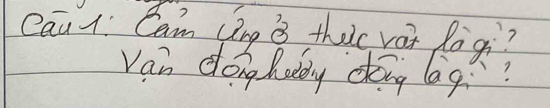 Câu 1: Cảm ứng ở thực vật là gì?
Vận động hướng động là gì?